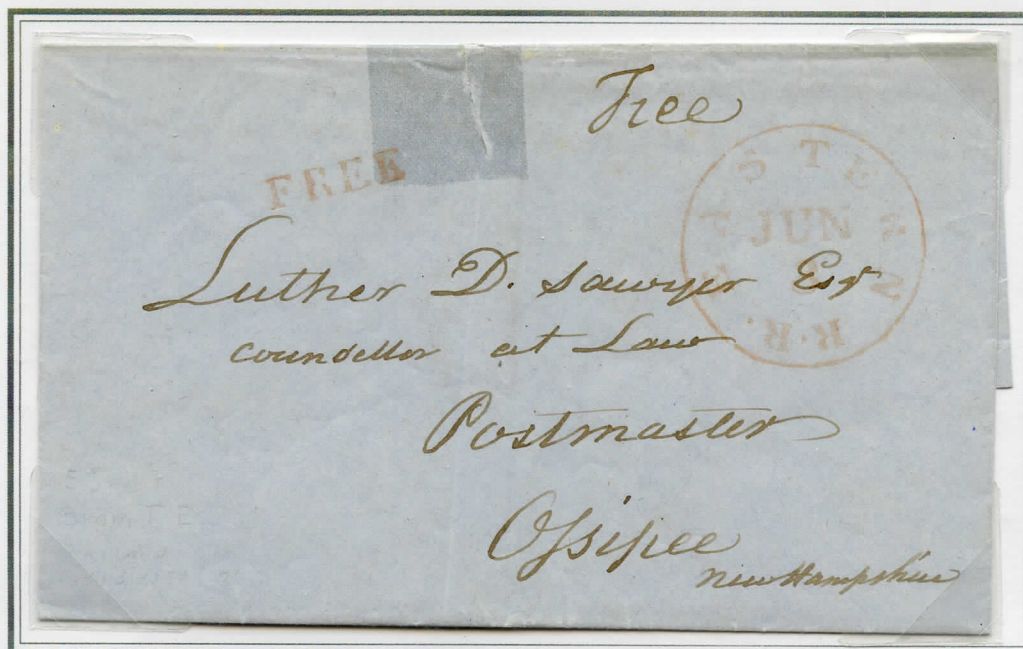 Free
FREE
EASTERN R.R.
JUN
Luther D. Sawyer Esqr
Counsellor at Law
Postmaster
Ossipee
New Hampshire